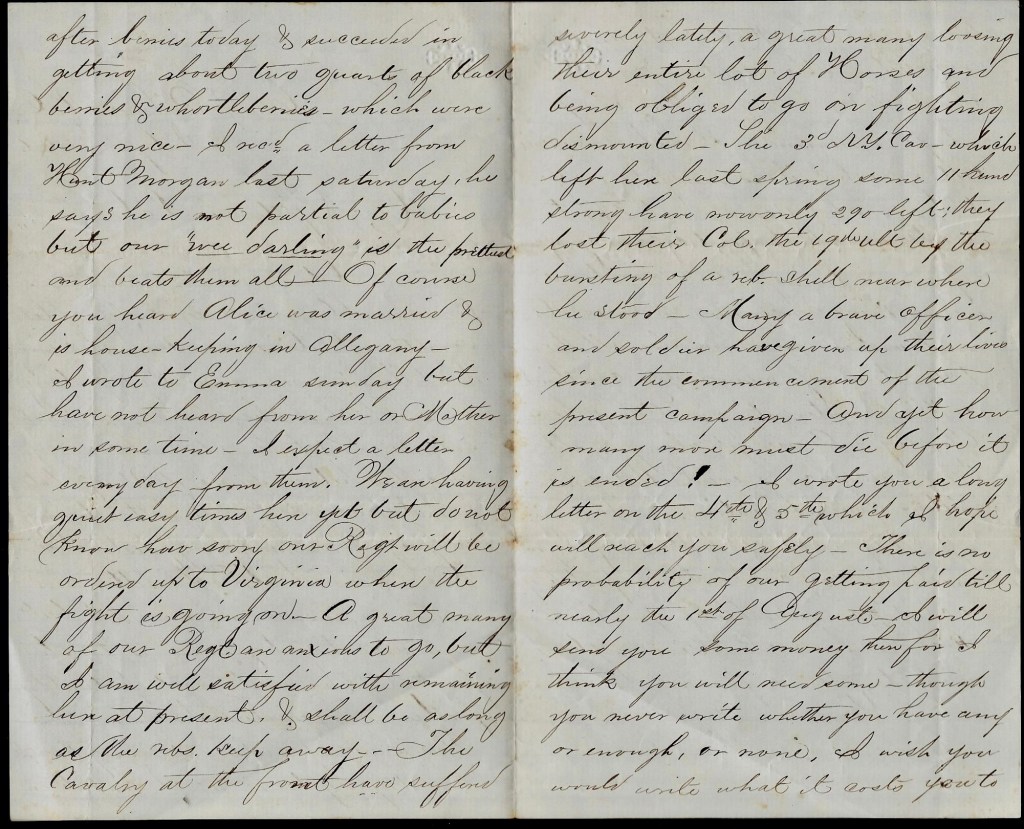 after berries today & succeeded in
getting about two quarts of black
berries & whortleberries - which were
very nice - I recd a letter from
Hunt Morgan last saturday, he
says he is not partial to babies
but our "wee darling" is the prettiest
and beats them all - Of course
you heard Alice was married &
is house-keeping in Allegany -
I wrote to Emma sunday but
have not heard from her or Mother
in some time - I expect a letter
every day from them. We are having
quiet easy times here yet but do not
know how soon our Regt will be
ordered up to Virginia where the
fight is going on - A great many
of our Regt are anxious to go, but
I am well satisfied with remaining
here at present, & shall be as long
as the rebs. keep away - - The
Cavalry at the front have suffered
severely lately, a great many loosing
their entire lot of Horses and
being obliged to go on fighting
dismounted - The 3d N.Y. Cav - which
left here last spring some 11 hund
strong have now only 290 left; they
lost their Col. the 19th ult by the
bursting of a reb. shell near where
he stood - Many a brave officer
and soldier have given up their lives
since the commencement of the
present campaign - And yet how
many more must die before it
is ended! - I wrote you a long
letter on the 4th & 5th which I hope
will reach you safely - There is no
probability of our getting paid till
nearly the 1st of August - I will
send you some money then for I
think you will need some - though
you never write whether you have any
or enough, or none, I wish you
would write what it costs you to